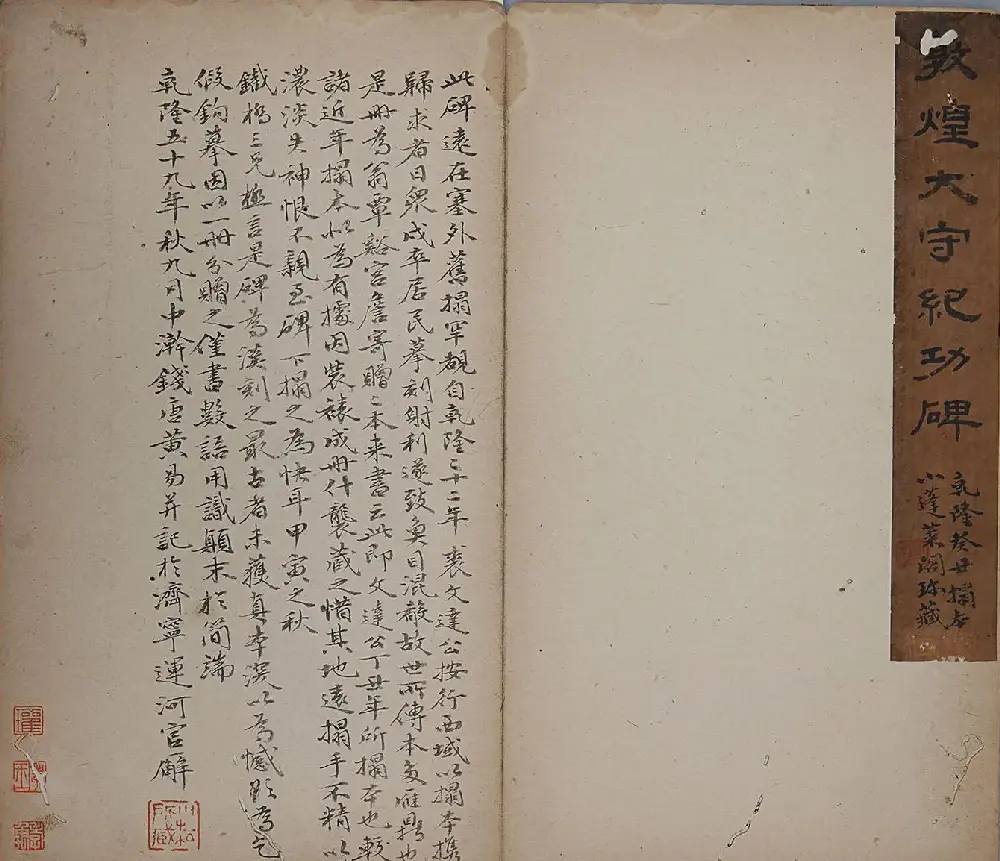 敦煌大守紀功碑
乾隆癸丑搨本
小蓬萊閣珍藏
此碑遠在塞外舊搨罕覯自乾隆二十二年裘文達公按行西域以搨本攜
歸求者日衆戍卒居民摹刻射利遂致奐目混殽故世所傳本多雁鼎也
是冊為翁覃谿宮詹寄贈本来書云此即文達公丁丑年所搨本也較
諸近年搨本似為有據因裝褾成冊什襲藏之惜其地遠搨手不精以
濃淡失神恨不親至碑下搨之為快耳甲寅之秋
鐵橋三兄極言是碑為漢刻之最古者未獲真本深以為憾為乞
假鉤摹因以一冊分贈之僅書數語用識顛末於簡端
乾隆五十九年秋九月中澣錢唐黃易并記於濟寧運河官廨